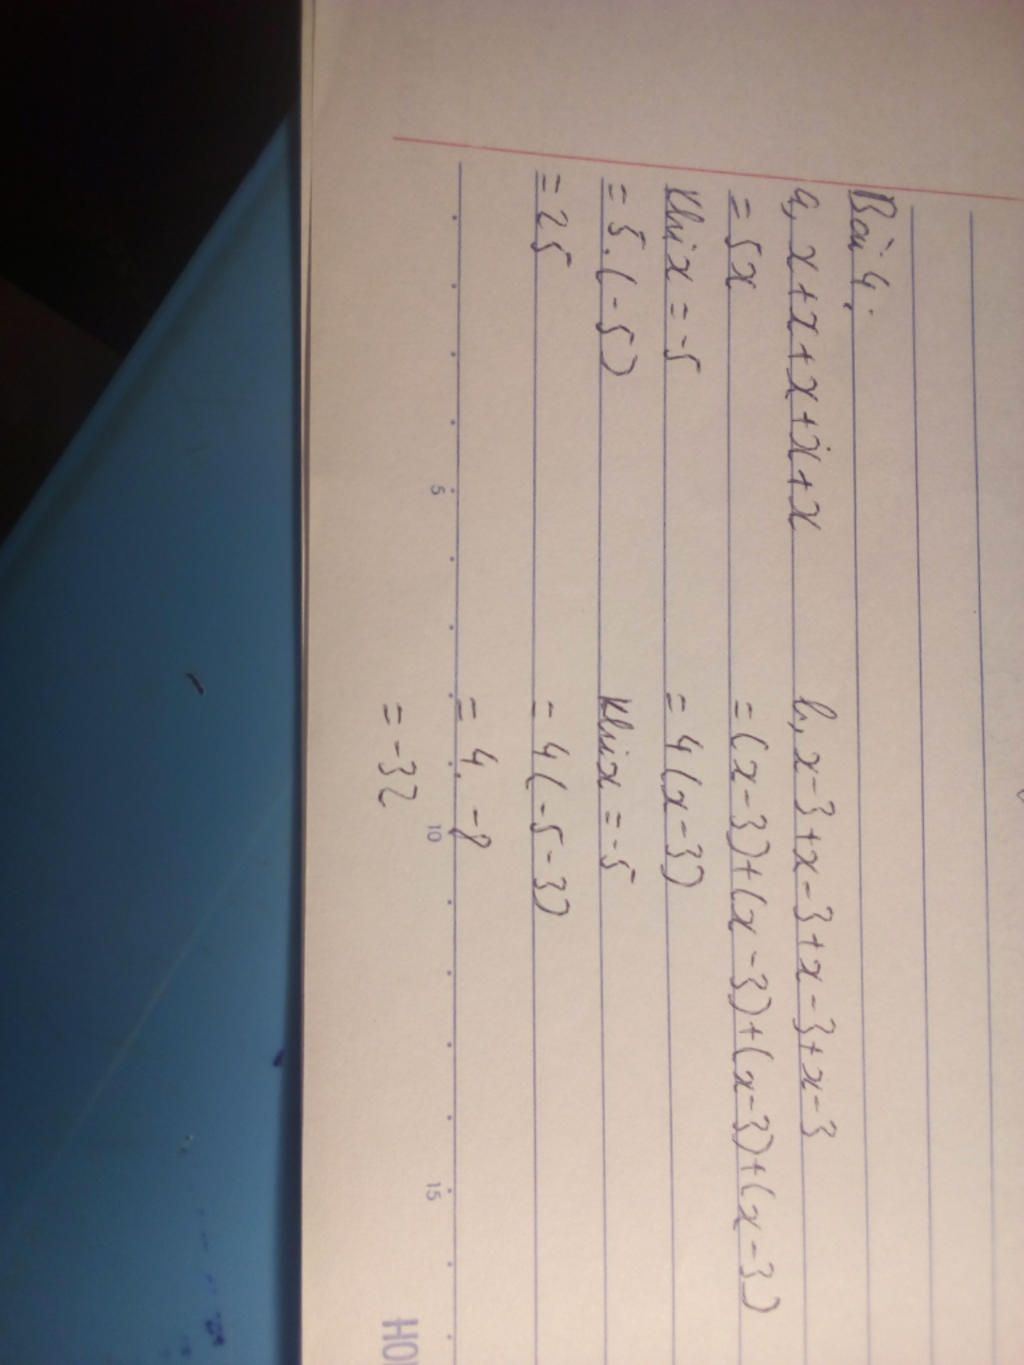 Bài 4:
a, x+x+x+x+x
= 5x
Khi x = -5
= 5.(-5)
= 25
b, x-3+x-3+x-3+x-3
=(x-3)+(x-3)+(x-3)+(x-3)
= 4(x-3)
Khi x = -5
= 4(-5-3)
= 4. -8
= -32
5
10
15